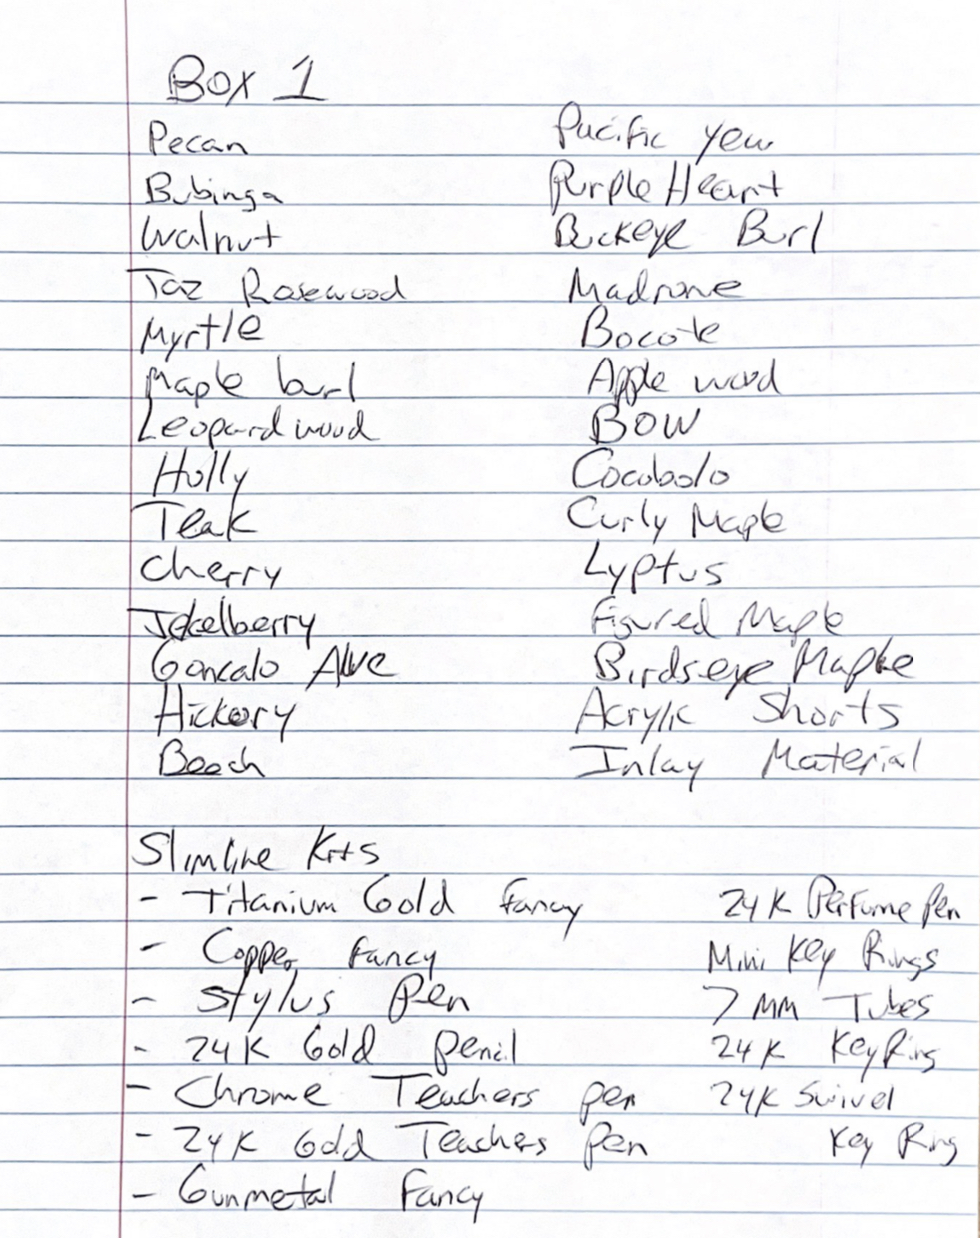 Box 1
Pecan
Bubinga
Walnut
Taz Rosewood
Myrtle
Maple burl
Leopard wood
Holly
Teak
Cherry
Jakelberry
Goncalo Alve
Hickory
Beech
Pacific Yew
Purple Heart
Buckeye Burl
Madrone
Bocote
Apple wood
BOW
Cocobolo
Curly Maple
Lyptus
Figured Maple
Birdseye Maple
Acrylic Shorts
Inlay Material
Slimline Kits
- Titanium Gold Fancy
- Copper Fancy
- Stylus Pen
- 24K Gold Pencil
- Chrome Teachers pen
- 24K Gold Teachers Pen
- Gunmetal Fancy
24K Perfume Pen
Mini Key Rings
7 MM Tubes
24K Key Ring
24K Swivel
Key Ring